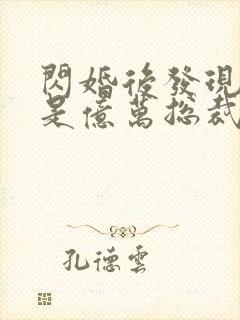 閃婚後發現
是億萬總裁
孔德雲